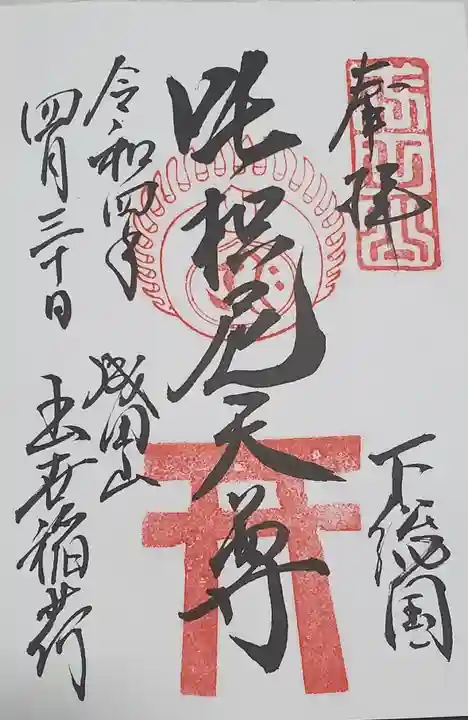 奉拝
下総国
吒枳尼天尊
令和四年
四月三十日
成田山
出世稲荷